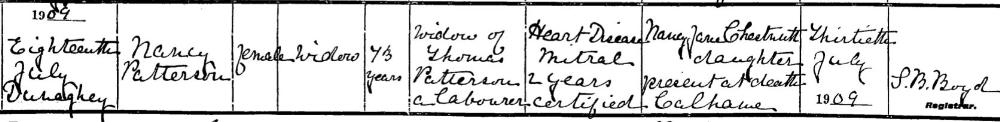 1909
Eighteenth
July
Dunaghey
Nancy
Patterson
female
Widow
73
years
Widow of
Thomas
Patterson
a Labourer
Heart Disease
Mitral
2 years
certified
Nancy Jane Chestnutt
daughter
present at death
Calhame
Thirtieth
July
1909
S. B. Boyd
Registrar.